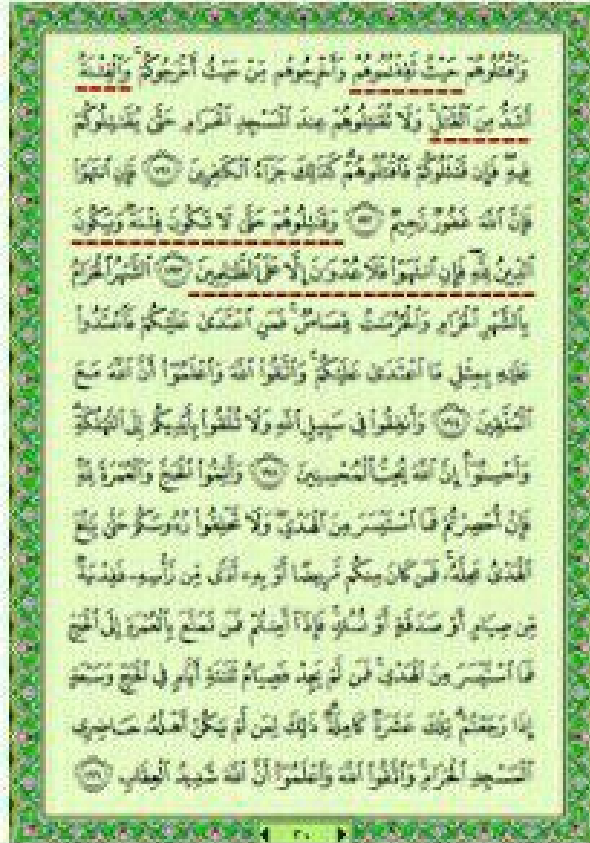 وَٱقْتُلُوهُمْ حَيْثُ ثَقِفْتُمُوهُمْ وَأَخْرِجُوهُم مِّنْ حَيْثُ أَخْرَجُوكُمْ ۚ وَٱلْفِتْنَةُ
أَشَدُّ مِنَ ٱلْقَتْلِ ۚ وَلَا تُقَٰتِلُوهُمْ عِندَ ٱلْمَسْجِدِ ٱلْحَرَامِ حَتَّىٰ يُقَٰتِلُوكُمْ
فِيهِ ۖ فَإِن قَٰتَلُوكُمْ فَٱقْتُلُوهُمْ ۗ كَذَٰلِكَ جَزَآءُ ٱلْكَٰفِرِينَ ۝١٩١ فَإِنِ ٱنتَهَوْا۟
فَإِنَّ ٱللَّهَ غَفُورٌ رَّحِيمٌ ۝١٩٢ وَقَٰتِلُوهُمْ حَتَّىٰ لَا تَكُونَ فِتْنَةٌ وَيَكُونَ
ٱلدِّينُ لِلَّهِ ۖ فَإِنِ ٱنتَهَوْا۟ فَلَا عُدْوَٰنَ إِلَّا عَلَى ٱلظَّٰلِمِينَ ۝١٩٣ ٱلشَّهْرُ ٱلْحَرَامُ
بِٱلشَّهْرِ ٱلْحَرَامِ وَٱلْحُرُمَٰتُ قِصَاصٌ ۚ فَمَنِ ٱعْتَدَىٰ عَلَيْكُمْ فَٱعْتَدُوا۟
عَلَيْهِ بِمِثْلِ مَا ٱعْتَدَىٰ عَلَيْكُمْ ۚ وَٱتَّقُوا۟ ٱللَّهَ وَٱعْلَمُوٓا۟ أَنَّ ٱللَّهَ مَعَ
ٱلْمُتَّقِينَ ۝١٩٤ وَأَنفِقُوا۟ فِى سَبِيلِ ٱللَّهِ وَلَا تُلْقُوا۟ بِأَيْدِيكُمْ إِلَى ٱلتَّهْلُكَةِ ۛ
وَأَحْسِنُوٓا۟ ۛ إِنَّ ٱللَّهَ يُحِبُّ ٱلْمُحْسِنِينَ ۝١٩٥ وَأَتِمُّوا۟ ٱلْحَجَّ وَٱلْعُمْرَةَ لِلَّهِ ۚ
فَإِنْ أُحْصِرْتُمْ فَمَا ٱسْتَيْسَرَ مِنَ ٱلْهَدْىِ ۖ وَلَا تَحْلِقُوا۟ رُءُوسَكُمْ حَتَّىٰ يَبْلُغَ
ٱلْهَدْىُ مَحِلَّهُۥ ۚ فَمَن كَانَ مِنكُم مَّرِيضًا أَوْ بِهِۦٓ أَذًى مِّن رَّأْسِهِۦ فَفِدْيَةٌ
مِّن صِيَامٍ أَوْ صَدَقَةٍ أَوْ نُسُكٍ ۚ فَإِذَآ أَمِنتُمْ فَمَن تَمَتَّعَ بِٱلْعُمْرَةِ إِلَى ٱلْحَجِّ
فَمَا ٱسْتَيْسَرَ مِنَ ٱلْهَدْىِ ۚ فَمَن لَّمْ يَجِدْ فَصِيَامُ ثَلَٰثَةِ أَيَّامٍ فِى ٱلْحَجِّ وَسَبْعَةٍ
إِذَا رَجَعْتُمْ ۗ تِلْكَ عَشَرَةٌ كَامِلَةٌ ۗ ذَٰلِكَ لِمَن لَّمْ يَكُنْ أَهْلُهُۥ حَاضِرِى
ٱلْمَسْجِدِ ٱلْحَرَامِ ۚ وَٱتَّقُوا۟ ٱللَّهَ وَٱعْلَمُوٓا۟ أَنَّ ٱللَّهَ شَدِيدُ ٱلْعِقَابِ ۝١٩٦
٣٠